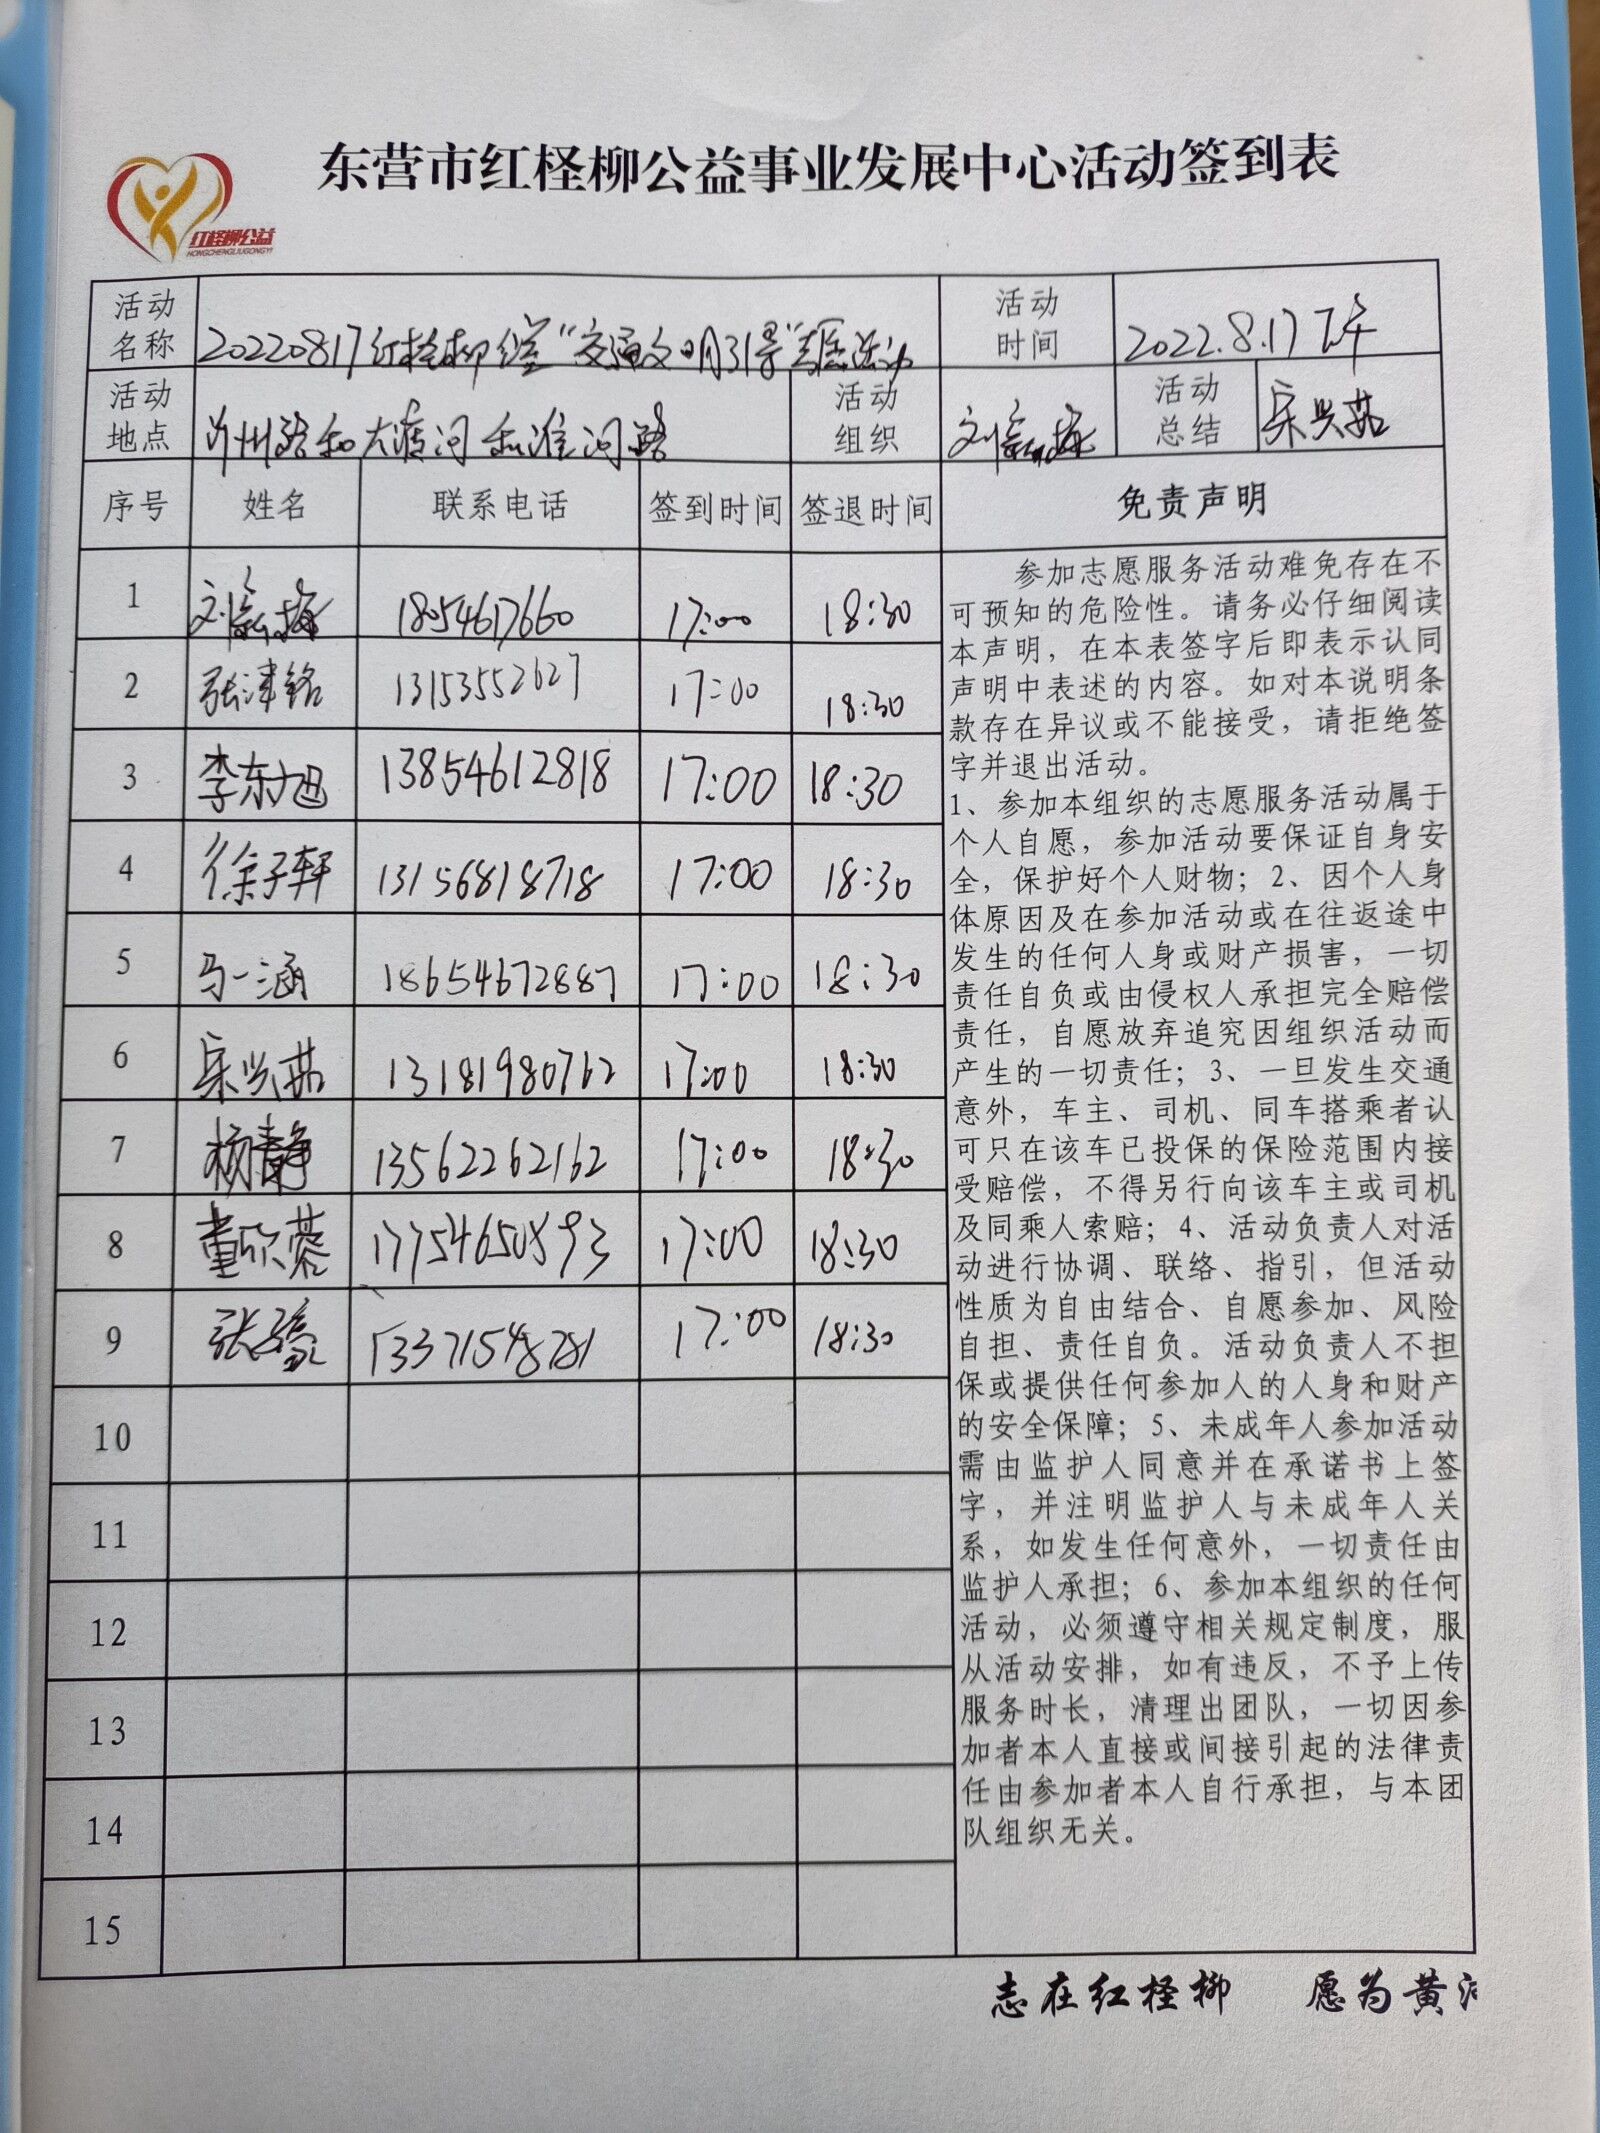 东营市红柽柳公益事业发展中心活动签到表
红柽柳公益
HONGCHENGLIUGONGYI
活动名称 20220817红柽柳公益"交通文明引导"志愿活动 活动时间 2022.8.17下午
活动地点 沂州路和大渡河和淮河路 活动组织 活动总结 宋兴茹
序号 姓名 联系电话 签到时间 签退时间 免责声明
1 18054617660 17:00 18:30
2 张津铭 13153552627 17:00 18:30
3 李东旭 13854612818 17:00 18:30
4 徐子轩 13156818718 17:00 18:30
5 马一涵 18654672887 17:00 18:30
6 宋兴茹 13181980762 17:00 18:30
7 杨静 13562262162 17:00 18:30
8 董欣蓉 17754650893 17:00 18:30
9 13371548781 17:00 18:30
10
11
12
13
14
15
参加志愿服务活动难免存在不
可预知的危险性。请务必仔细阅读
本声明，在本表签字后即表示认同
声明中表述的内容。如对本说明条
款存在异议或不能接受，请拒绝签
字并退出活动。
1、参加本组织的志愿服务活动属于
个人自愿，参加活动要保证自身安
全，保护好个人财物；2、因个人身
体原因及在参加活动或在往返途中
发生的任何人身或财产损害，一切
责任自负或由侵权人承担完全赔偿
责任，自愿放弃追究因组织活动而
产生的一切责任；3、一旦发生交通
意外，车主、司机、同车搭乘者认
可只在该车已投保的保险范围内接
受赔偿，不得另行向该车主或司机
及同乘人索赔；4、活动负责人对活
动进行协调、联络、指引，但活动
性质为自由结合、自愿参加、风险
自担、责任自负。活动负责人不担
保或提供任何参加人的人身和财产
的安全保障；5、未成年人参加活动
需由监护人同意并在承诺书上签
字，并注明监护人与未成年人关
系，如发生任何意外，一切责任由
监护人承担；6、参加本组织的任何
活动，必须遵守相关规定制度，服
从活动安排，如有违反，不予上传
服务时长，清理出团队，一切因参
加者本人直接或间接引起的法律责
任由参加者本人自行承担，与本团
队组织无关。
志在红柽柳 愿为黄河